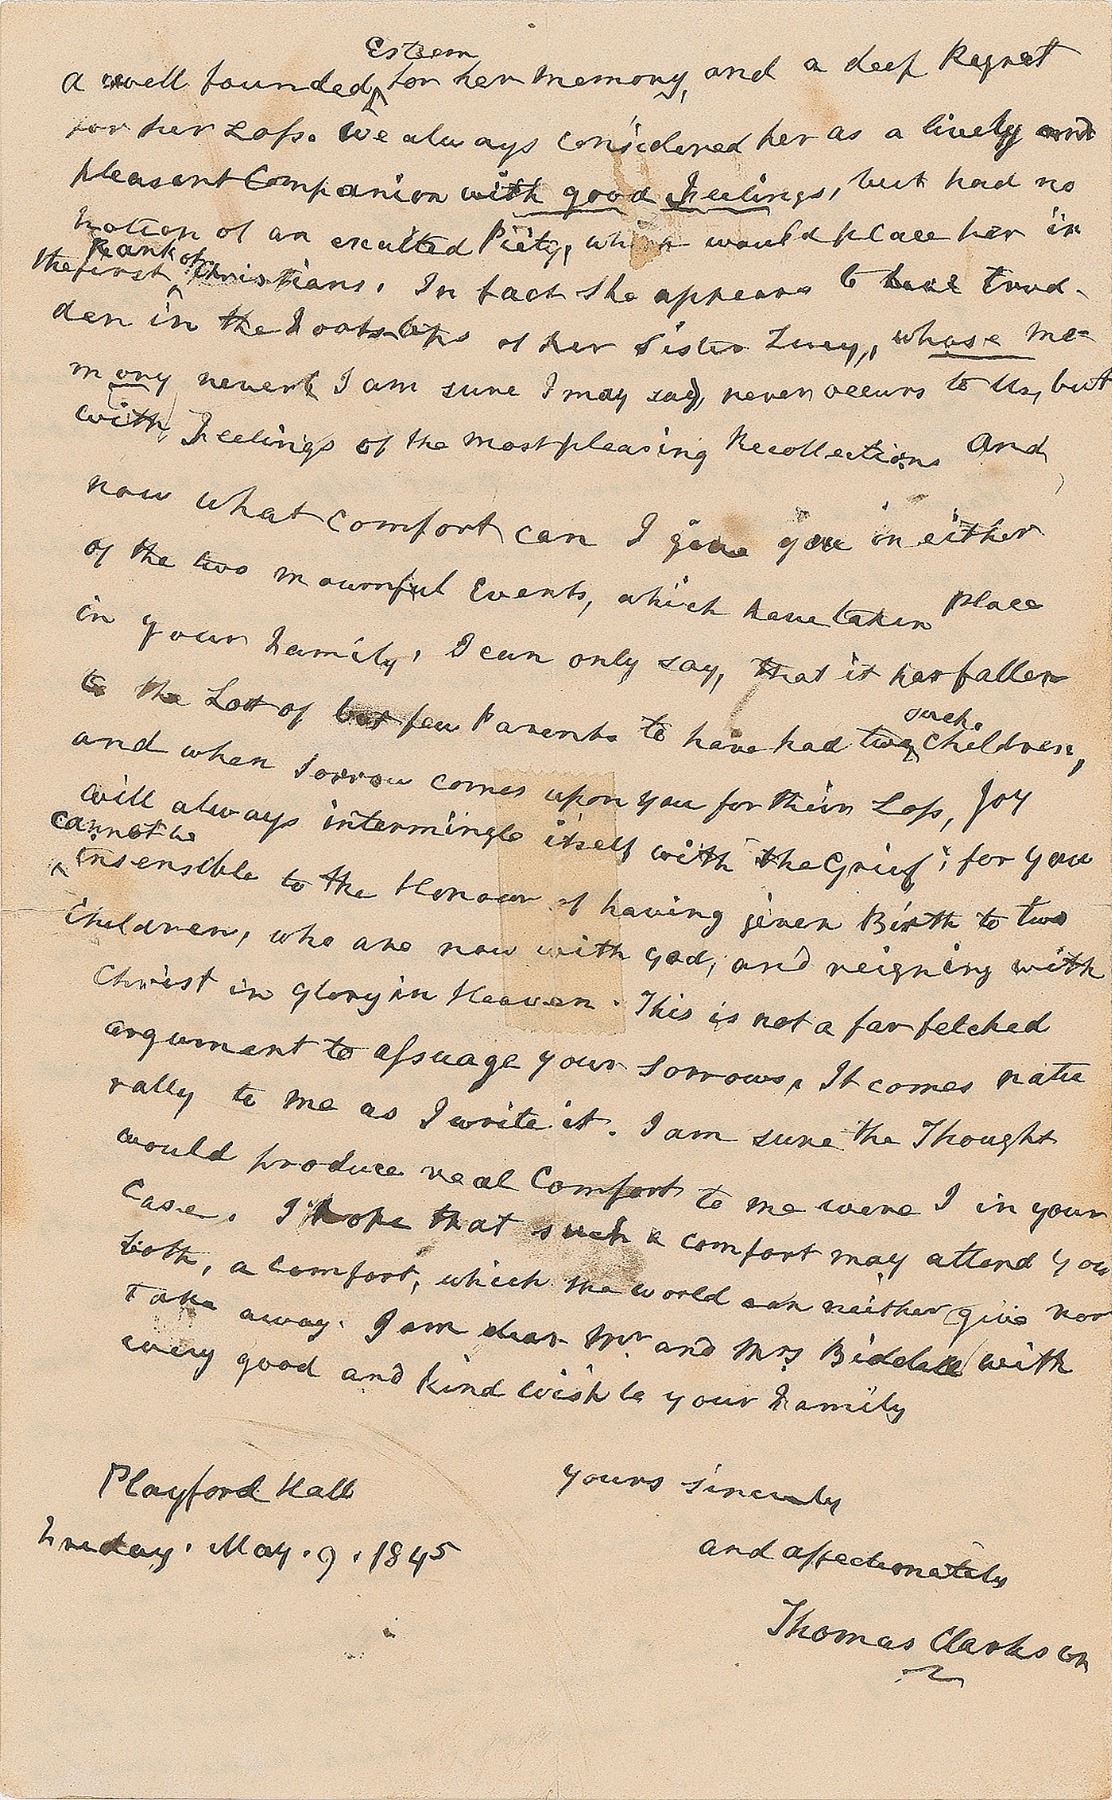 Esteem
a well founded ^ for her memory, and a deep Regret
for her Loss. We always considered her as a lively and
pleasant Companion with good Feelings, but had no
notion of an exalted Piety, which would place her in
Rank of
the first ^ Christians. In fact she appears to have trod-
den in the Footsteps of her Sister Lucy, whose me-
mory never, I am sure I may say, never occurs to us, but
with Feelings of the most pleasing Recollections And
now what comfort can I give you in either
of the two mournful Events, which have taken place
in your Family. I can only say, that it has fallen
to the Lot of but few Parents to have had two ^ such Children,
and when Sorrow comes upon you for their Loss, Joy
will always intermingle itself with the Grief; for you
cannot be
^ insensible to the Honour of having given Birth to two
Children, who are now with God, and reigning with
Christ in glory in Heaven. This is not a far fetched
argument to assuage your Sorrows. It comes natu
rally to me as I write it. I am sure the Thought
would produce real Comfort to me were I in your
Case. I hope that such a comfort may attend you
both, a comfort, which the world can neither give nor
take away. I am dear Mr and Mrs Biddell with
every good and kind wish to your Family
yours sincerely
and affectionately
Thomas Clarkson
Playford Hall
Friday. May. 9. 1845